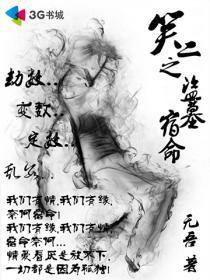 3G书城
笑 之
盗墓
宿命
劫数...
变数...
定数...
乱
我们有情,我们有缘,
奈何宿命!
我们有情,我们有缘,
宿命奈何...
情爱 是放不下,
一切都是因为孤独!
元吾 著